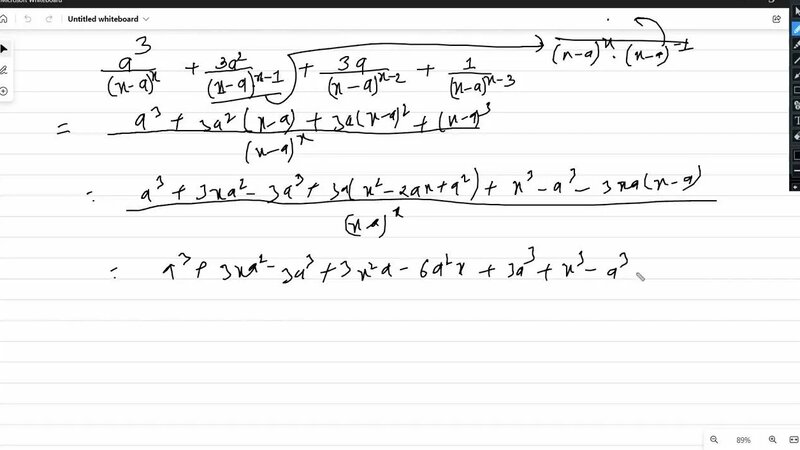 Untitled whiteboard
a³/(x-a)^x + 3a²/(x-a)^(x-1) + 3a/(x-a)^(x-2) + 1/(x-a)^(x-3)
(x-a)^x · (x-a)^-1
= (a³ + 3a²(x-a) + 3a(x-a)² + (x-a)³)/(x-a)^x
= (a³ + 3xa² - 3a³ + 3a(x² - 2ax + a²) + x³ - a³ - 3xa(x-a))/(x-a)^x
= a³ + 3xa² - 3a³ + 3x²a - 6a²x + 3a³ + x³ - a³
89%